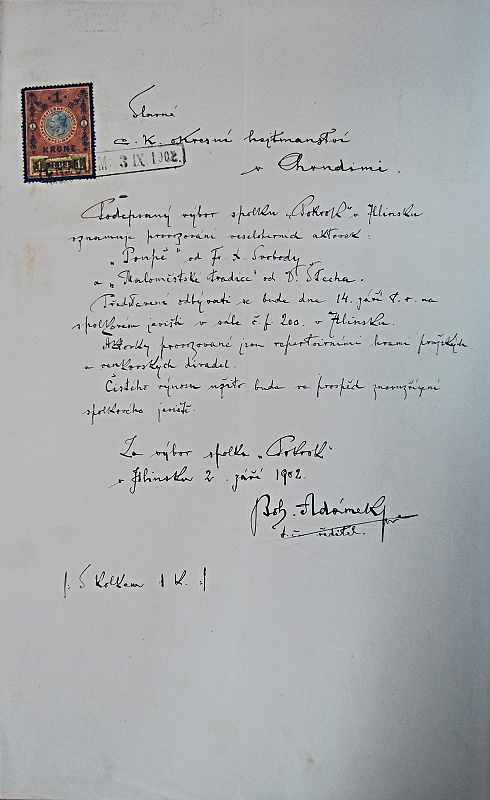 1
KRONE
3 IX 1902.
Slavné
c. k. okresní hejtmanství
v Chrudimi.
Podepsaný výbor spolku „Pokrok" v Hlinsku
oznamuje provozování veseloherních aktovek:
„Poupě" od Fr. X. Svobody
a „Maloměstské tradice" od V. Štecha.
Představení odbývati se bude dne 14. září t. r. na
spolkovém jevišti v sále č. p. 200. v Hlinsku.
Aktovky provozované jsou repertoirními hrami pražských
a venkovských divadel.
Čistého výnosu užito bude ve prospěch znovuzřízení
spolkového jeviště.
Za výbor spolku „Pokrok"
v Hlinsku 2. září 1902.
Boh. Adámek
t. č. ředitel.
/: S kolkem 1 K. :/